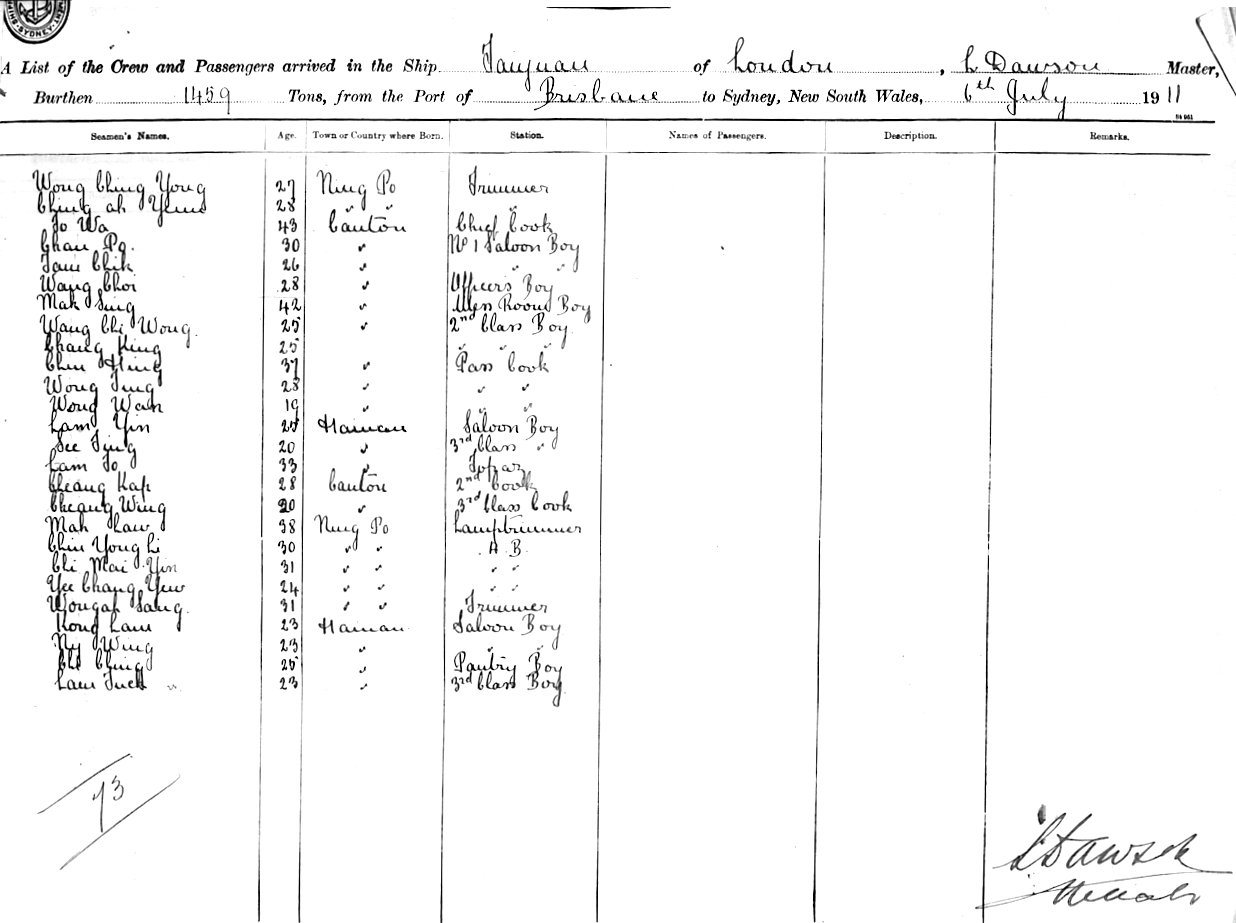 SYDNEY
A List of the Crew and Passengers arrived in the Ship Taiyuan of London, L Dawson Master,
Burthen 1459 Tons, from the Port of Brisbane to Sydney, New South Wales, 6th July 1911
Seamen's Names. Age. Town or Country where Born. Station. Names of Passengers. Description. Remarks.
Wong Ching Yong 27 Ning Po Trimmer
Ching ah 28 " " "
Jo Wa 43 Canton Chief Cook
Chan Po. 30 " No 1 Saloon Boy
Tam Chik 26 " " "
Wang Choi 28 " Officers Boy
Mak Sing 42 " Mess Room Boy
Wang Chi Wong. 25 " 2nd Class Boy
Chang King 25 " " "
Chin Hing 37 " Pass Cook
Wong Ting 28 " " "
Wong Wan 19 " " "
Lam Yin 25 Hainan Saloon Boy
See Ting 20 " 3rd Class "
Lam Jo 33 " Topaz
Cheang Kap 28 Canton 2nd Cook
Cheang Wing 20 " 3rd Class Cook
Mah Law 38 Ning Po Lamptrimmer
Chin Yong Li 30 " " A B
Chi Mai Yin 31 " " " "
Yee Chang Yew 24 " " " "
Wongah Sang. 31 " " Trimmer
Kong Lam 23 Hainan Saloon Boy
Ny Wing 23 " " "
Chi Ching 25 " Pantry Boy
Lam Tuck 23 " 3rd Class Boy
73
L Dawson